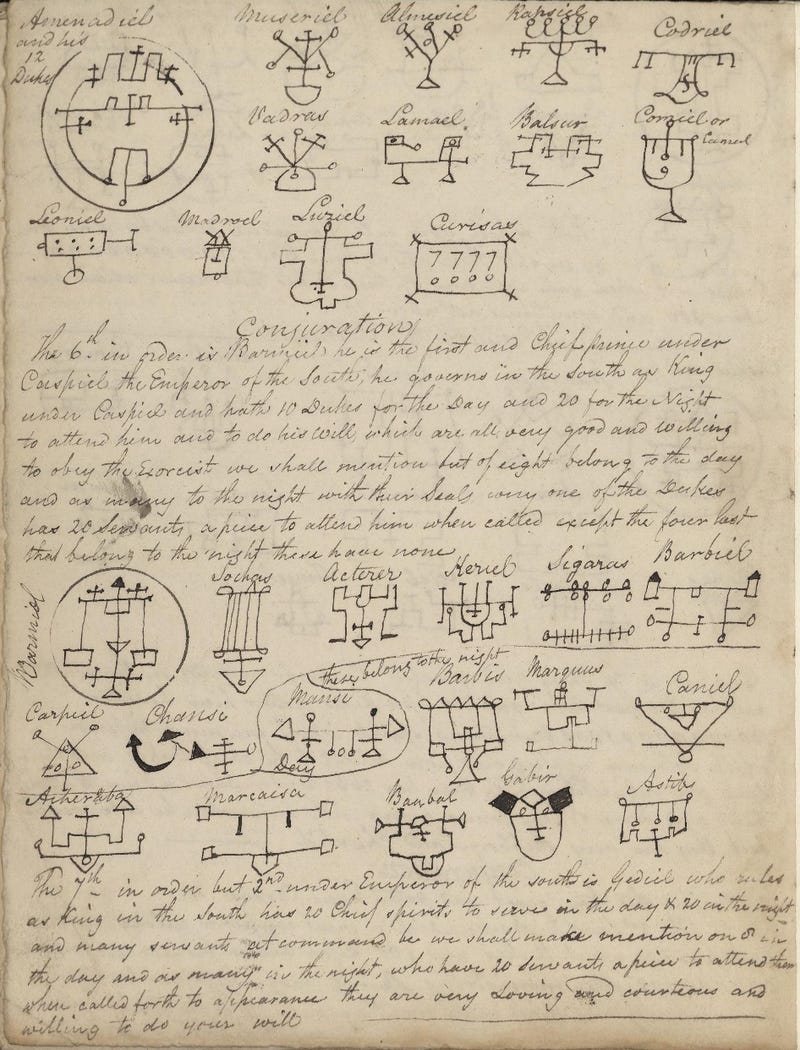 Amenadiel
and his
12
Dukes
Museriel
Almesiel
Rapsiel
Codriel
Vadras
Lamael
Balsur
Corniel or
Camel
Leoniel
Madroel
Luziel
Curisas
7777
Conjuration
The 6th in order is Barmiel he is the first and Chief prince under
Caspiel the Emperor of the South, he governs in the South as King
under Caspiel and hath 10 Dukes for the Day and 20 for the Night
to attend him and to do his Will, which are all very good and Willing
to obey the Exorcist we shall mention but of eight belong to the day
and as many to the night with their Seals every one of the Dukes
has 20 Servants a peice to attend him when called except the four last
that belong to the night these have none
Barmiel
Sochas
Acterer
Keriel
Sigaras
Barbiel
these belong to the night
Carpiel
Chansi
Mansi
Day
Barbis
Marguns
Caniel
Acheraba
Marcaisa
Baabal
Gabir
Astib
The 7th in order but 2nd under Emperor of the south is Gediel who rules
as King in the South has 20 Chief spirits to serve in the day & 20 in the night
and many servants at command be we shall make mention on 8 in
the day and as many in the night, who have 20 servants a peice to attend them
when called forth to appearance they are very Loving and courteous and
willing to do your will